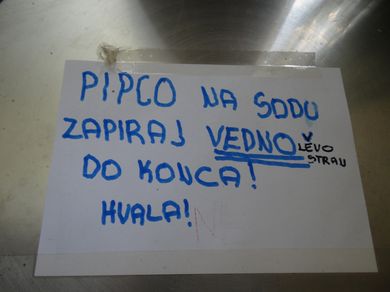 PIPCO NA SODU
ZAPIRAJ VEDNO V LEVO STRAN
DO KONCA!
HVALA!